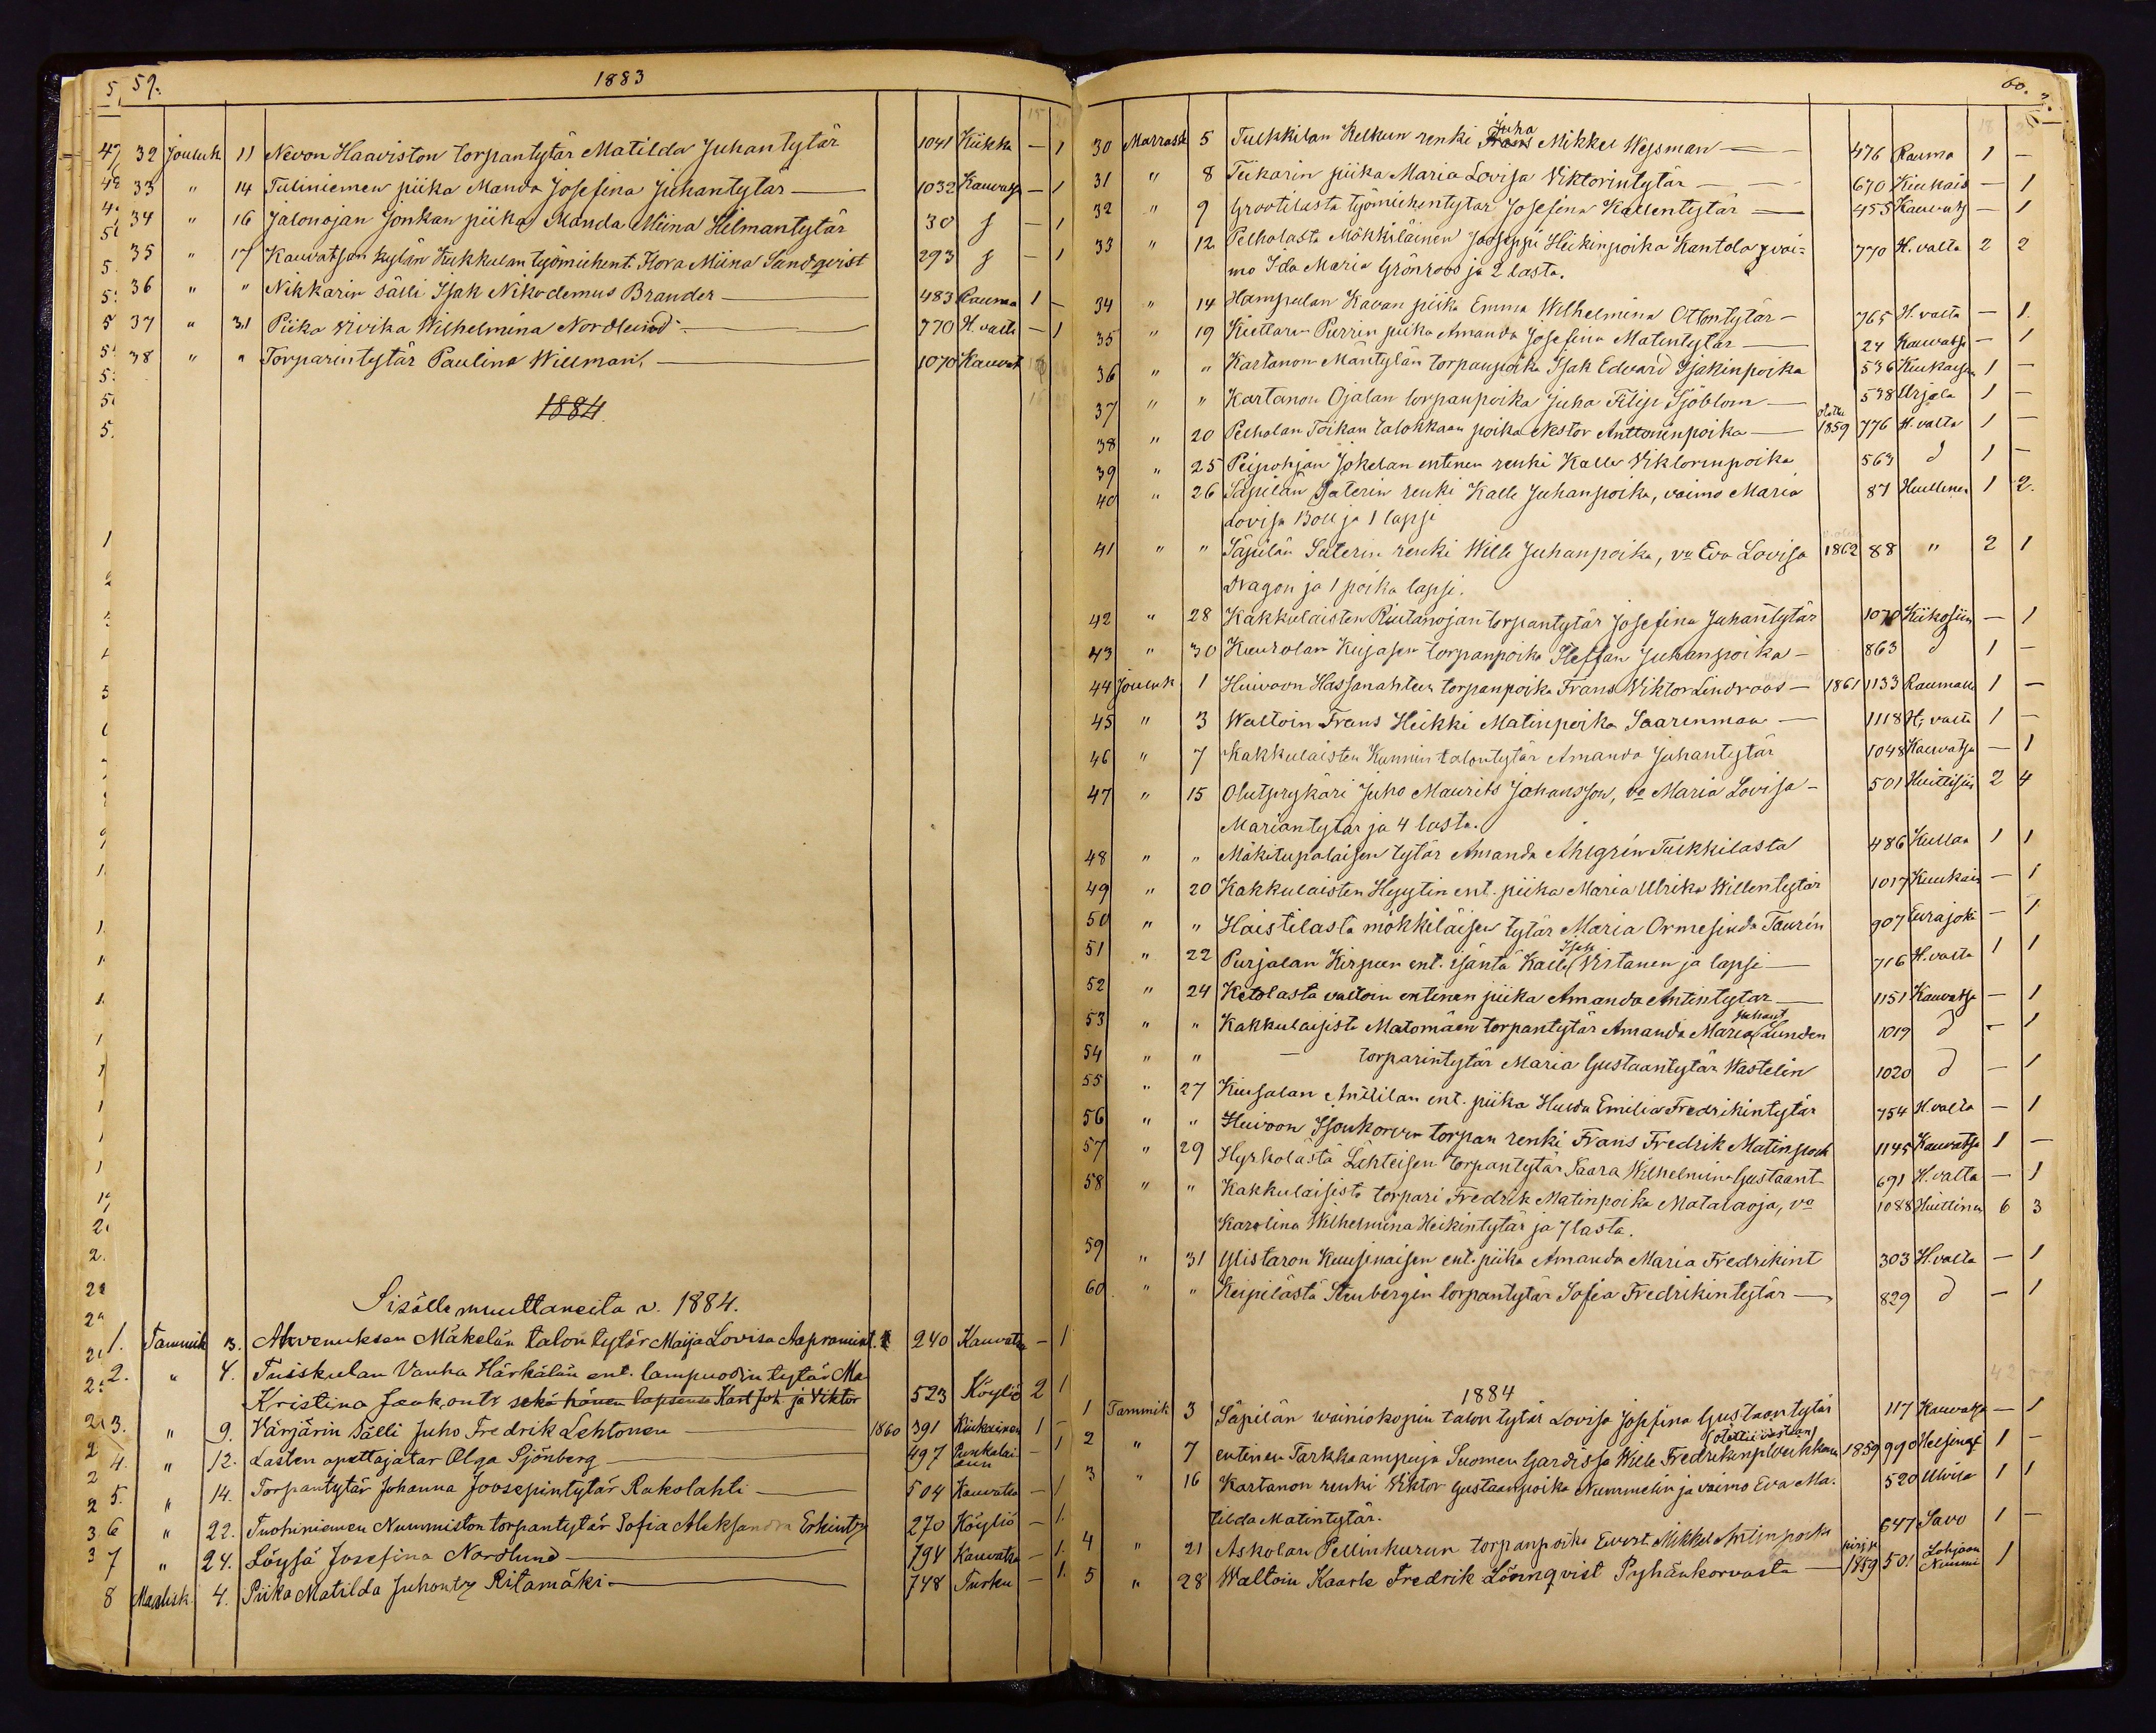 59.
1883
32 Jouluk 11 Nevon Haaviston torpantytär Matilda Juhantytär 1041 Kiikka — 1
33 " 14 Tuliniemen piika Manda Josefina Juhantytär — 1032 Kauvatsa — 1
34 " 16 Jalonojan Jonkan piika Manda Miina Helmantytär 30 — 1
35 " 17 Kauvatsan kylän Kukkulan työmiehent. Flora Miina Sandqvist 293 — 1
36 " " Nikkarin sälli Isak Nikodemus Brander — 483 Rauma 1 —
37 " 31 Piika Vivika Wilhelmina Nordlund — 770 H. valta — 1
38 " " Torparintytär Paulina Willman. — 1070 Kauvat
1884.
Sisälle muuttaneita v. 1884.
1. Tammik 3. Ahvenuksen Mäkelän talon tytär Maija Lovisa Aapramint. 240 Kauvatsa — 1
2. " 4. Tuiskulan Vanha Härkälän ent. lampuodin tytär Ma
Kristina Jaak.ontr sekä hänen lapsensa Karl Joh. ja Viktor 523 Köyliö 2 1
3. " 9. Värjärin Sälli Juho Fredrik Lehtonen — 1860 391 Kiukainen 1 —
4. " 12. Lasten opettajatar Olga Sjönberg — 497 Punkalai
dun — 1
5. " 14. Torpantytär Johanna Joosepintytär Rakolahti — 504 Kauvatsa — 1
6 " 22. Tuohiniemen Nummiston torpantytär Sofia Aleksandra Erkinty 270 Köyliö — 1.
7 " 24. Löysä Josefina Nordlund — 794 Kauvatsa — 1.
8 Maalisk. 4. Piika Matilda Juhonty Ritamäki — 748 Turku — 1.
60.
30 Marrask 5 Tulkkilan Kelkun renki Frans Juha Mikkel Weisman — 476 Rauma 1 —
31 " 8 Tiikarin piika Maria Lovisa Viktorintytär — 670 Kiukais — 1
32 " 9 Grootilasta työmiehentytär Josefina Kallentytär — 455 Kauvats — 1
33 " 12 Pelholasta Mökkiläinen Jooseppi Heikinpoika Kantola, vai= 770 H. valta 2 2
mo Ida Maria Grönroos ja 2 lasta.
34 " 14 Hampulan Kavan piika Emma Wilhelmina Ottontytär — 765 H. valta — 1.
35 " 19 Kiettaren Purrin piika Amanda Josefina Matintytär — 24 Kauvatsa — 1
36 " " Kartanon Mäntylän torpanpoika Isak Edvard Isakinpoika 536 1 —
37 " " Kartanon Ojalan torpanpoika Juha Filip Sjöblom — 538 Urjala 1 —
38 " 20 Pelholan Toikan talokkaan poika Nestor Anttoninpoika — 1859 776 H. valta 1 —
39 " 25 Peipohjan Jokelan entinen renki Kalle Viktorinpoika 563 d 1 —
40 " 26 Säpilän Saterin renki Kalle Juhanpoika, vaimo Maria 87 Huittinen 1 2.
Lovisa Boll ja 1 lapsi
41 " " Säpilän Saterin renki Wille Juhanpoika, vo Eva Lovisa 1862 88 " 2 1
Dragon ja 1 poika lapsi.
42 " 28 Kakkulaisten Riutanojan torpantytär Josefina Juhantytär 1070 Kiikoisiin — 1
43 " 30 Kuurolan Kujasen torpanpoika Steffan Juhanpoika — 863 d 1 —
44 Jouluk 1 Huivoon Hassanahteen torpanpoika Frans Viktor Lindroos — 1861 1133 Raumalle 1 —
45 " 3 Waltoin Frans Heikki Matinpoika Saarenmaa — 1118 H. valta 1 —
46 " 7 Kakkulaisten Kunnin talontytär Amanda Juhantytär 1048 Kauvatsa — 1
47 " 15 Olutprykäri Juho Maurits Johansson, vo Maria Lovisa — 501 Huittisiin 2 4
Mariantytär ja 4 lasta.
48 " " Mäkitupalaisen tytär Amanda Ahlgrén Tulkkilasta 486 Kullaa 1 1
49 " 20 Kakkulaisten Hyytin ent. piika Maria Ulrika Willentytär 1017 Kiukais — 1
50 " " Haistilasta mökkiläisen tytär Maria Ormesinda Taurén 907 Eurajoki — 1
51 " 22 Purjalan Kirpun ent. isäntä Kalle Isak Virtanen ja lapsi — 716 H. valta 1 1
52 " 24 Ketolasta valtoin entinen piika Amanda Antintytär — 1151 Kauvatsa — 1
53 " " Kakkulaisista Matomäen torpantytär Amanda Maria Juhant. Lunden 1019 d — 1
54 " " — torparintytär Maria Gustaantytär Wastelin 1020 d — 1
55 " 27 Kiusalan Anttilan ent. piika Hulda Emilia Fredrikintytär 754 H. valta — 1
56 " " Huivoon Isonkorven torpan renki Frans Fredrik Matinpoik 1145 Kauvatsa 1 —
57 " 29 Hyrkölästä Lähteisen torpantytär Saara Wilhelmina Gustaant 691 H. valta — 1
58 " " Kakkulaisista torpari Fredrik Matinpoika Matalaoja, vo 1088 Huittinen 6 3
Karolina Wilhelmina Heikintytär ja 7 lasta.
59 " 31 Ylistaron Kuusinaisen ent. piika Amanda Maria Fredrikint 303 H. valta — 1
60 " " Keipilästä Stenbergin torpantytär Sofia Fredrikintytär — 829 d — 1
1884
1 Tammik 3 Säpilän wainiokopin talon tytär Lovisa Josefina Gustaontytär 117 Kauvatsa — 1
2 " 7 entinen Tarkkaampuja Suomen Gardissa Wille Fredrikinp. 1859 990 1 —
3 " 16 Kartanon renki Viktor Gustaanpoika Nummelin ja vaimo Eva Ma. 520 Ulvila 1 1
tilda Matintytär.
4 " 21 Askolan Pellinkurun torpanpoika Evert Mikkel Antinpoika 647 Savo 1 —
5 " 28 Waltoin Kaarle Fredrik Lönnqvist Pyhänkorvasta — 1859 501 Lohjaan
Nummi 1